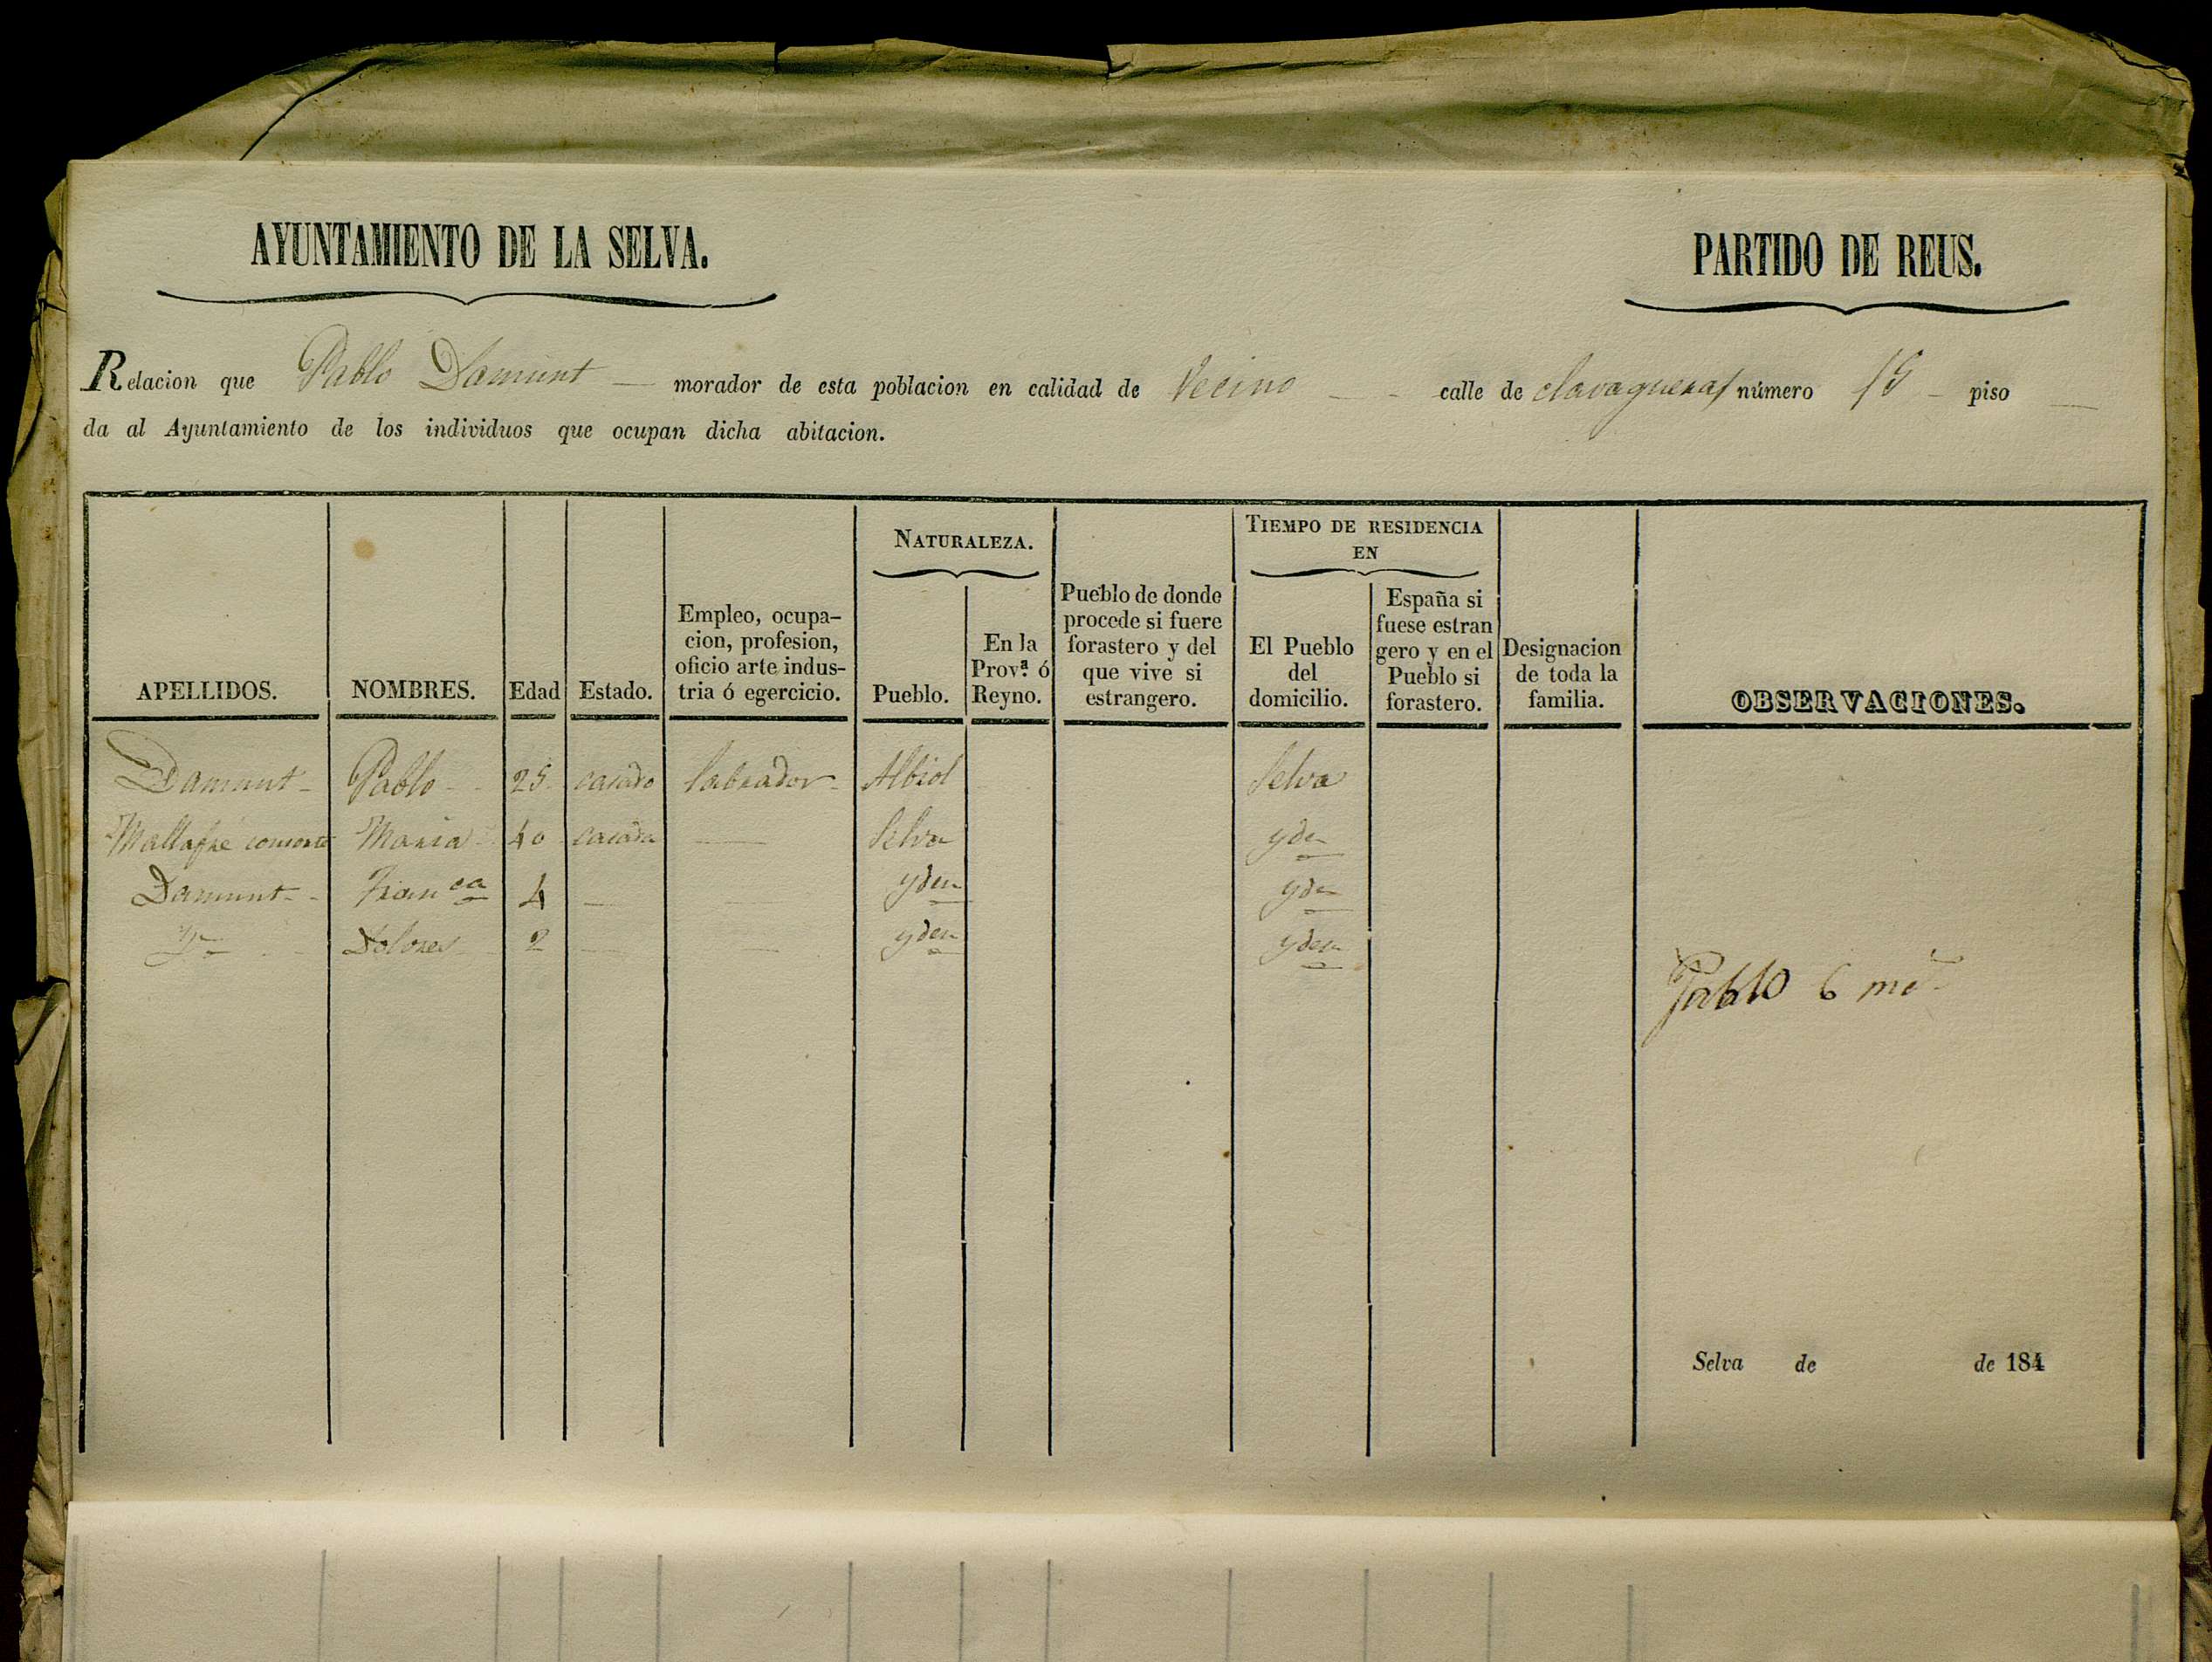 AYUNTAMIENTO DE LA SELVA.
PARTIDO DE REUS.
Relacion que Pablo Damunt — morador de esta poblacion en calidad de Vecino — - calle de clavagueras número 15 - piso —
da al Ayuntamiento de los individuos que ocupan dicha abitacion.
APELLIDOS. NOMBRES. Edad Estado. Empleo, ocupa-cion, profesion, oficio arte indus-tria ó egercicio. NATURALEZA. Pueblo. En la Prov.ª ó Reyno. Pueblo de donde procede si fuere forastero y del que vive si estrangero. TIEMPO DE RESIDENCIA EN El Pueblo del domicilio. España si fuese estran gero y en el Pueblo si forastero. Designacion de toda la familia. OBSERVACIONES.
Damunt - Pablo - 25 - casado labrador - Albiol Selva
Mallafré consorte Maria 40 casada — Selva yden
Damunt - Fran.ca 4 — — yden yden
Dolores 2 — — yden yden
Pablo 6 me.
Selva de de 184